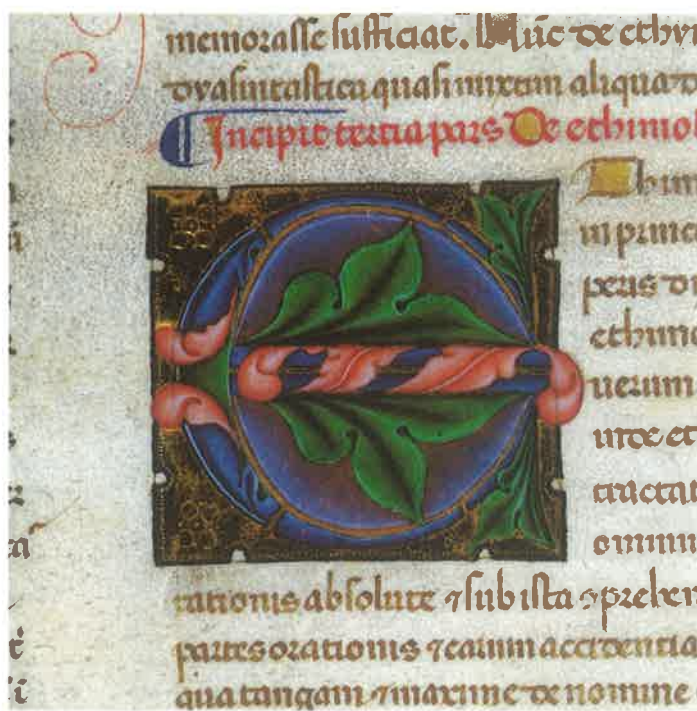 memorasse sufficiat. Nūc de ethy
dyasintastica quasi mixtim aliqua
Incipit tertia pars De ethimol
E
in princi
peris di
ethimo
uerum
unde et
tractat
omniu
rationis absolute ⁊ sub ista ꝯprehen
partes orationis ⁊ earum accidentia
qua tangam ⁊ maxime de nomine